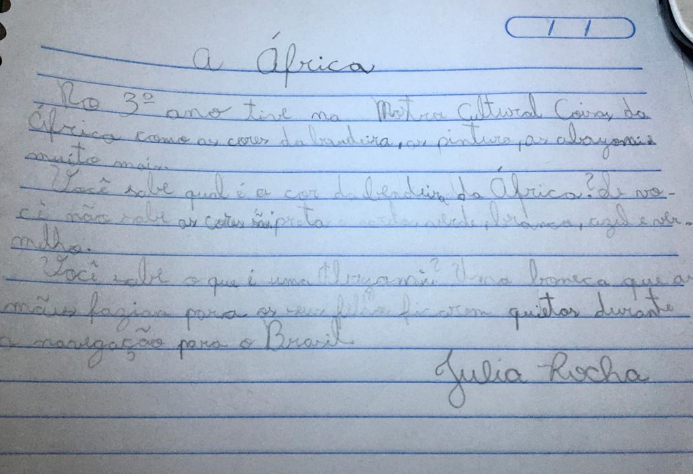 A África
No 3º ano tive na Mostra Cultural Coisas da
África como as cores da bandeira, as pintura, as abayomis
muito mais.
Você sabe qual é a cor da bandeira da África? Se vo-
cê não sabe as cores preta verde, branco, azul e ver-
melho.
Você sabe o que é uma Abayami? Uma boneca que as
mães faziam para os seu filhos ficarem quietos durante
a navegação para o Brasil
Julia Rocha